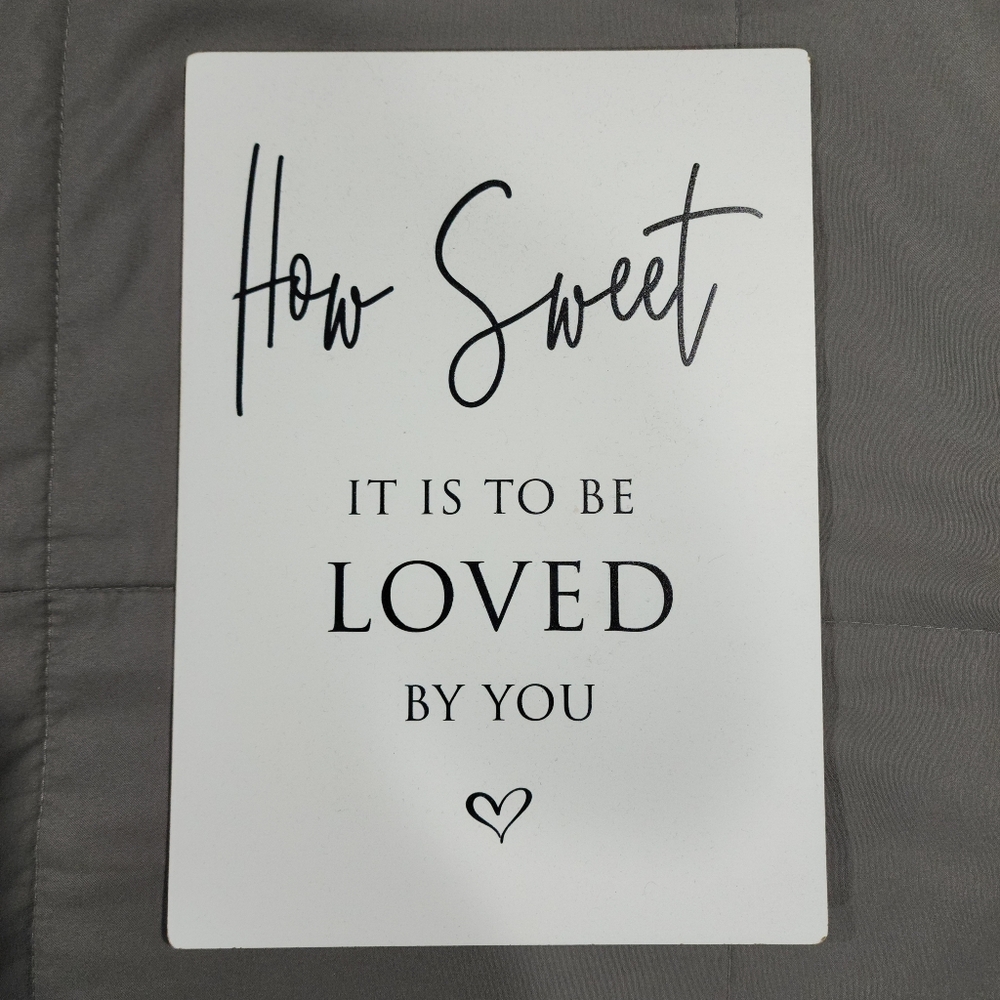 How Sweet
IT IS TO BE
LOVED
BY YOU